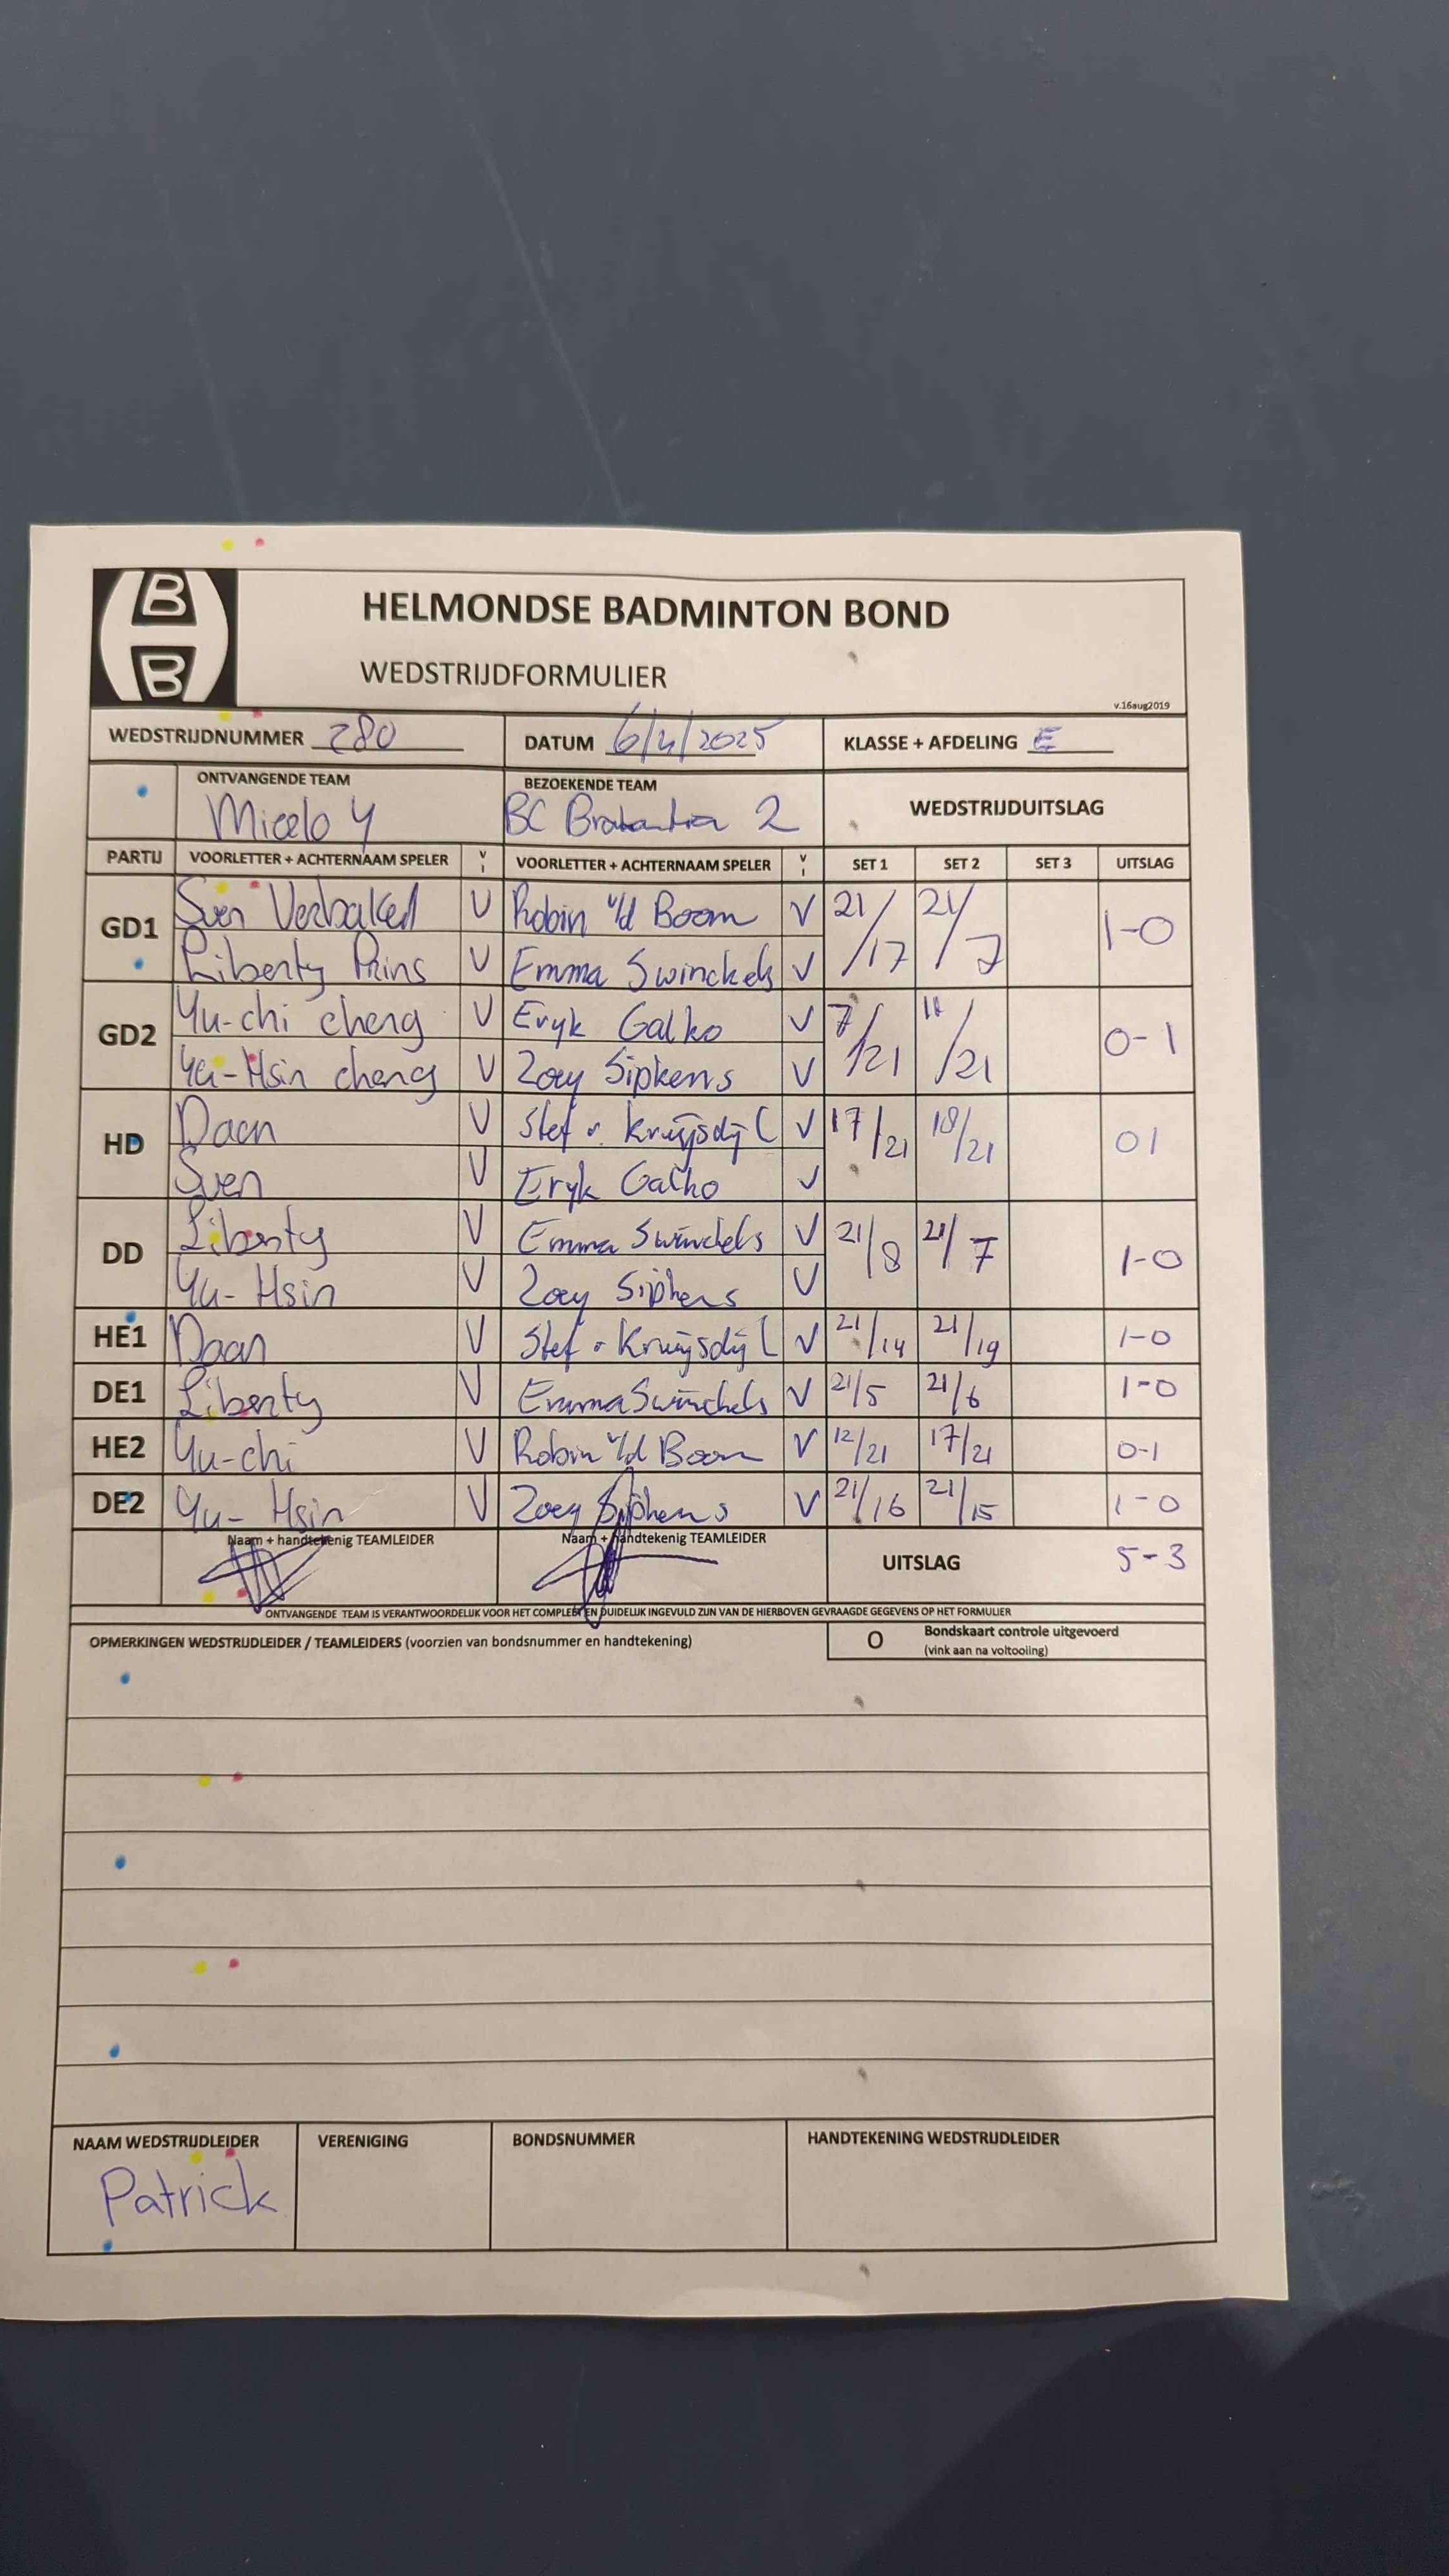 B
B
HELMONDSE BADMINTON BOND
WEDSTRIJDFORMULIER
v.16aug2019
WEDSTRIJDNUMMER 280 DATUM 6/4/2025 KLASSE + AFDELING E
ONTVANGENDE TEAM BEZOEKENDE TEAM WEDSTRIJDUITSLAG
Mierlo 4 BC Brabantia 2
PARTIJ VOORLETTER + ACHTERNAAM SPELER V I VOORLETTER + ACHTERNAAM SPELER V I SET 1 SET 2 SET 3 UITSLAG
GD1 Sven Verbakel V Robin v/d Boom V 21/17 21/7 1-0
Liberty Prins V Emma Swinckels V
GD2 Yu-chi cheng V Eryk Galko V 7/21 /21 0-1
Yu-Hsin cheng V Zoey Sipkens V
HD Daan V Stef v. Kruijsdijk V 17/21 18/21 01
Sven V Eryk Galko V
DD Liberty V Emma Swinckels V 21/8 21/7 1-0
Yu-Hsin V Zoey Sipkens V
HE1 Daan V Stef v Kruijsdijk V 21/14 21/19 1-0
DE1 Liberty V Emma Swinckels V 21/5 21/6 1-0
HE2 Yu-chi V Robin v/d Boom V 12/21 17/21 0-1
DE2 Yu-Hsin V Zoey Sipkens V 21/16 21/15 1-0
Naam + handtekenig TEAMLEIDER Naam + handtekenig TEAMLEIDER UITSLAG 5-3
ONTVANGENDE TEAM IS VERANTWOORDELIJK VOOR HET COMPLEET EN DUIDELIJK INGEVULD ZIJN VAN DE HIERBOVEN GEVRAAGDE GEGEVENS OP HET FORMULIER
OPMERKINGEN WEDSTRIJDLEIDER / TEAMLEIDERS (voorzien van bondsnummer en handtekening) O Bondskaart controle uitgevoerd
(vink aan na voltooiing)
NAAM WEDSTRIJDLEIDER VERENIGING BONDSNUMMER HANDTEKENING WEDSTRIJDLEIDER
Patrick